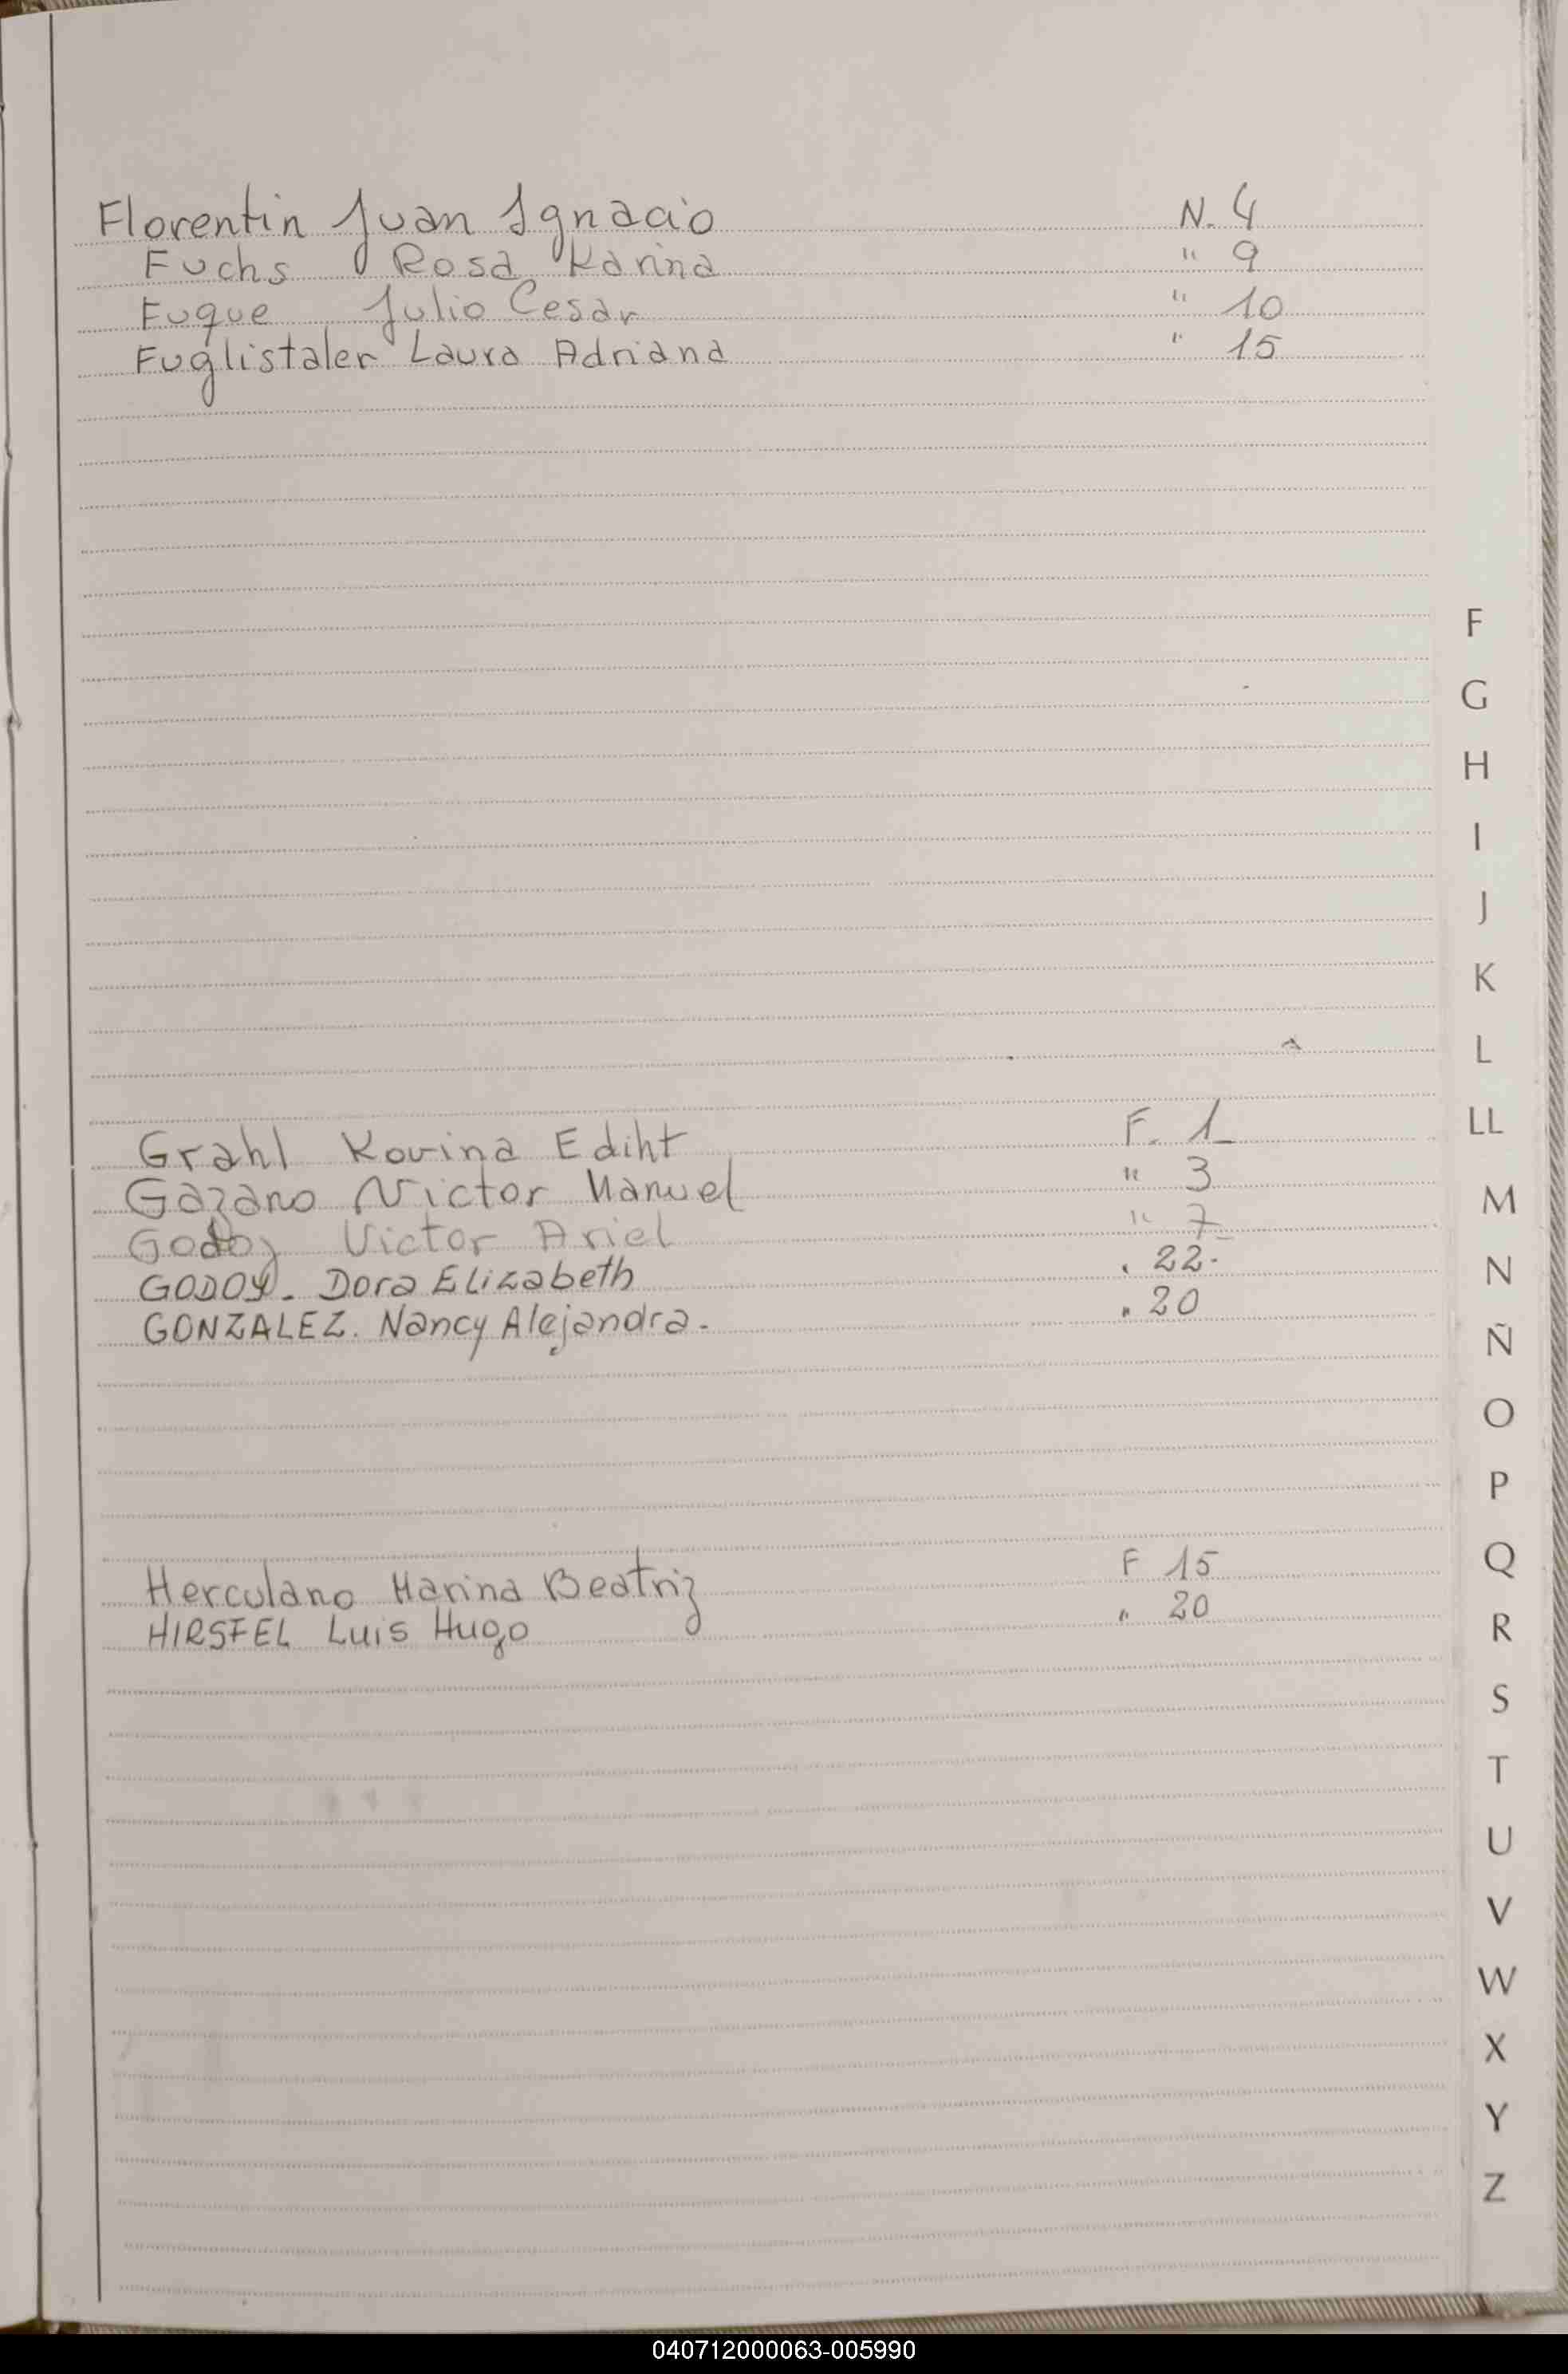 Florentin Juan Ignacio N. 4
Fuchs Rosa Karina " 9
Fuque Julio Cesar " 10
Fuglistaler Laura Adriana " 15
F
G
H
I
J
K
L
LL
Grahl Korina Ediht F. 1
Gazano Victor Manuel " 3
Godoy Victor Ariel " 7
GODOY. Dora Elizabeth " 22.
GONZALEZ. Nancy Alejandra. " 20
M
N
Ñ
O
P
Herculano Marina Beatriz F 15
HIRSFEL Luis Hugo " 20
Q
R
S
T
U
V
W
X
Y
Z
040712000063-005990